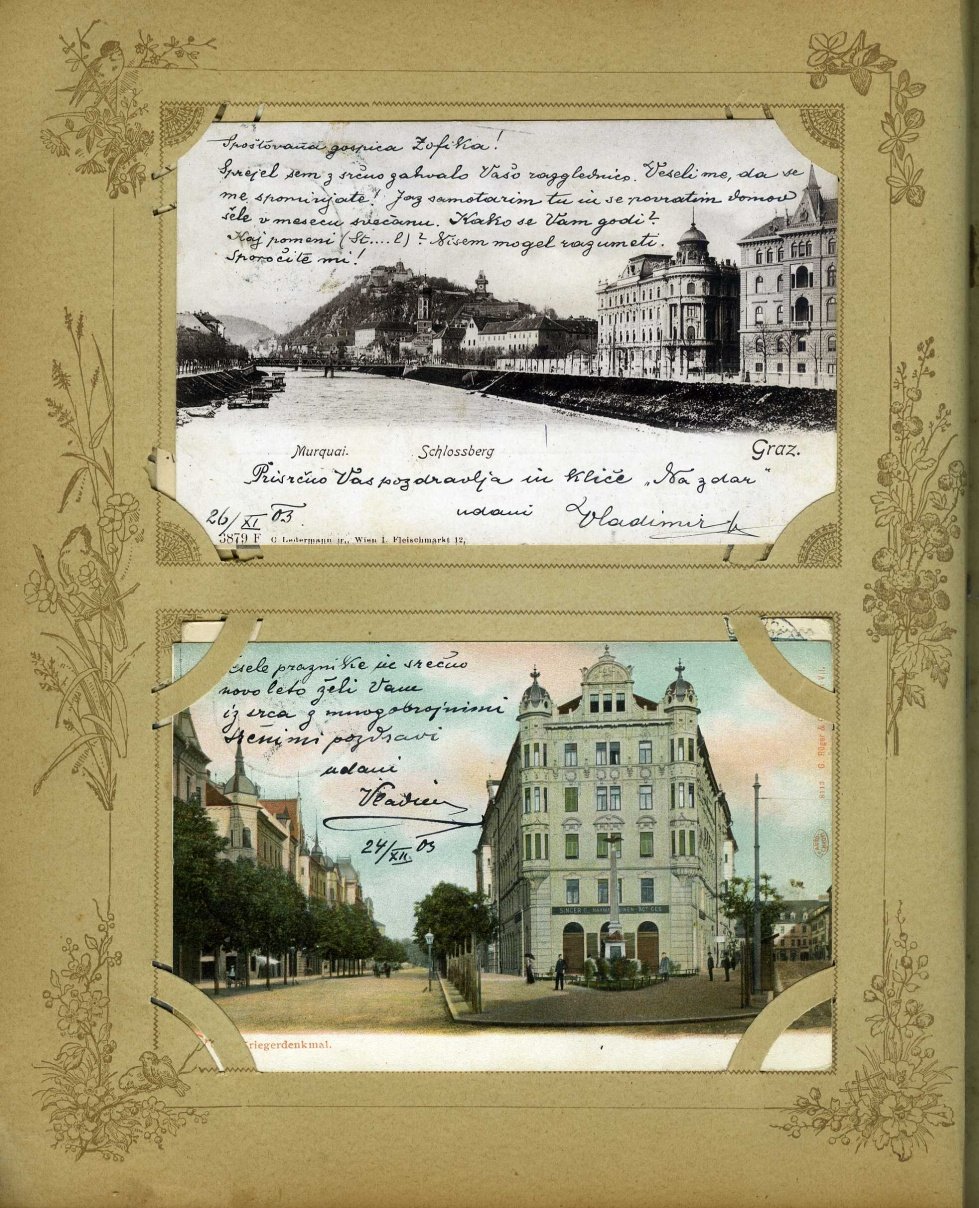 Spoštovana gospica Zofika!
Sprejel sem z srčno zahvalo Vašo razglednico. Veseli me, da se
me spominjate. Jaz samotarim tu in se povratim domov
šele v mesecu svečanu. Kako se Vam godi?
Kaj pomeni (St....l)? Nisem mogel razumeti.
Sporočite mi!
Murquai. Schlossberg Graz.
Prisrčno Vas pozdravlja in kliče „Na zdar"
udani Vladimir
26/XI 03.
3879 F C. Ledermann jr., Wien I. Fleischmarkt 12,
praznike in srečno
novo leto želi Vam
iz srca z mnogobrojnimi
srčnimi pozdravi
udani
24/XII 03
SINGER
riegerdenkmal.